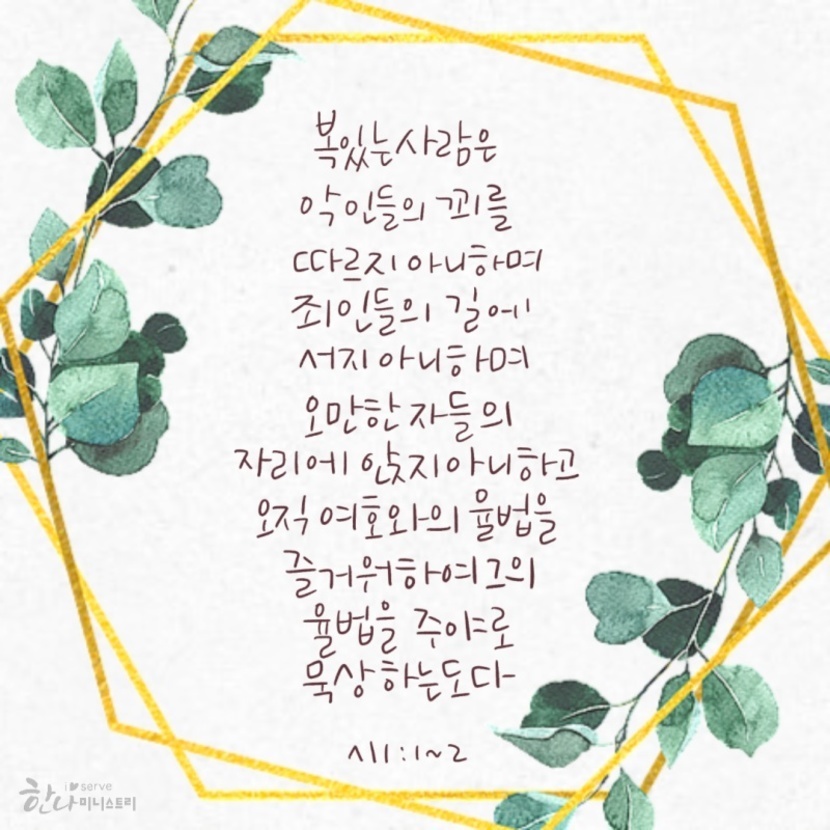 복있는사람은
악인들의 꾀를
따르지아니하며
죄인들의 길에
서지아니하며
오만한 자들의
자리에 앉지아니하고
오직 여호와의 율법을
즐거워하여그의
율법을 주야로
묵상하는도다
시1:1~2
i serve
한나미니스트리